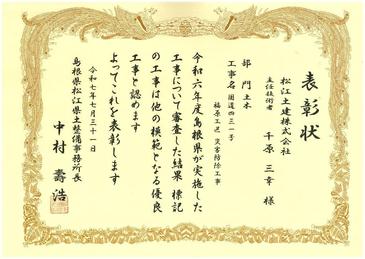 表彰状
松江土建株式会社
主任技術者
千原 三幸 様
部門 土木
工事名 国道四三一号
福原工区 災害防除工事
令和六年度島根県が実施した
工事について審査した結果 標記
の工事は他の模範となる優良
工事と認めます
よってこれを表彰します
令和七年七月三十一日
島根県松江県土整備事務所長
中村 壽浩